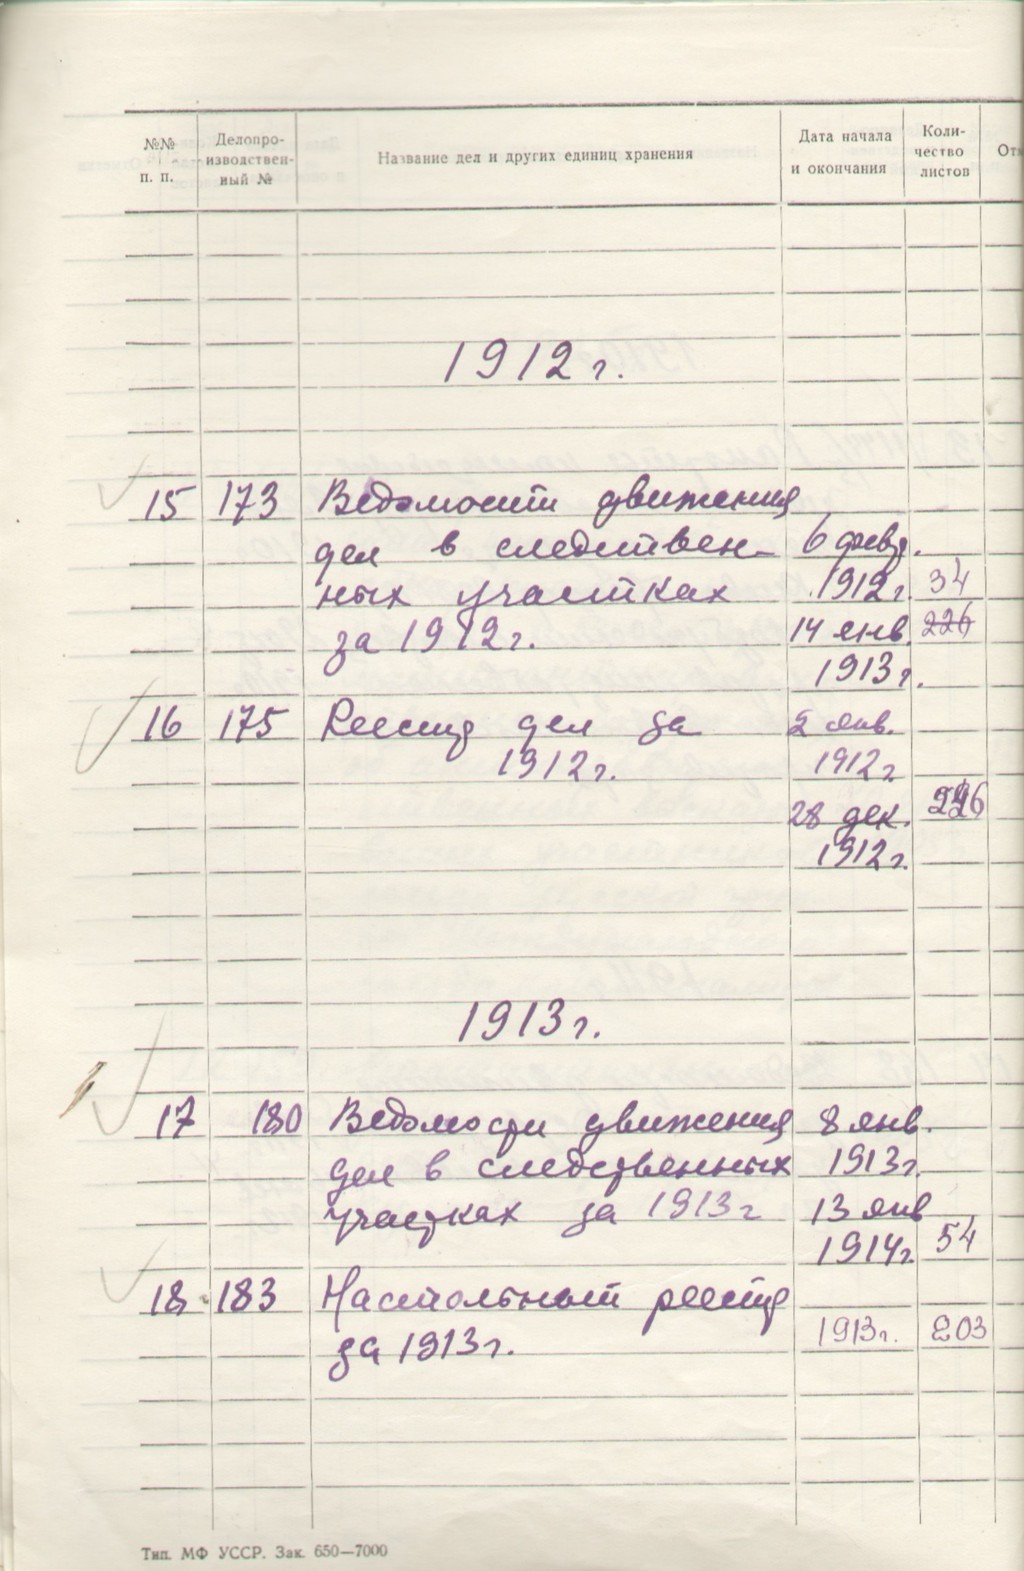 №№ п. п.
Делопроизводственный №
Название дел и других единиц хранения
Дата начала и окончания
Количество листов
1912 г.
15 173 Ведомости движения
дел в следствен- 6 февр.
ных участках 1912 г. 34
за 1912 г. 14 янв. 226
1913 г.
16 175 Реестр дел за 2 янв.
1912 г. 1912 г.
28 дек. 226
1912 г.
1913 г.
17 180 Ведомости движения 8 янв.
дел в следственных 1913 г.
участках за 1913 г 13 янв
1914 г. 54
18 183 Настольный реестр
за 1913 г. 1913 г. 203
Тип. МФ УССР. Зак. 650—7000